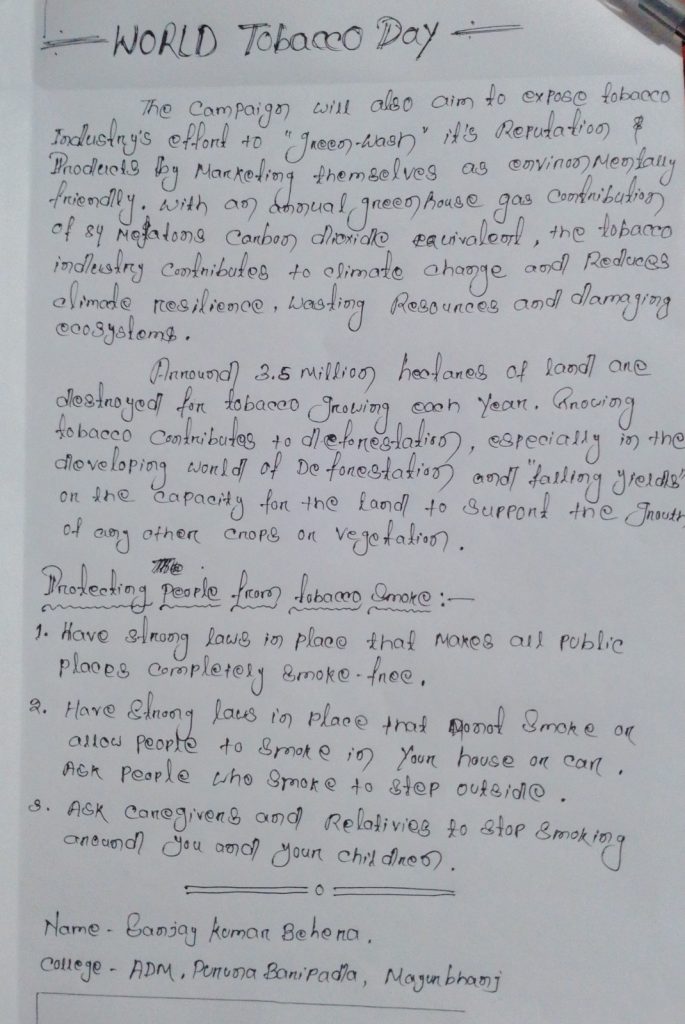 WORLD Tobacco Day
The Campaign will also aim to expose tobacco
Industry's effort to "green-wash" it's Reputation &
Products by Marketing themselves as environmentally
friendly. With an annual greenhouse gas contribution
of 84 Megatons Carbon dioxide equivalent, the tobacco
industry contributes to climate change and Reduces
climate resilience, wasting Resources and damaging
ecosystems.
Arround 3.5 Million hectares of land are
destroyed for tobacco growing each Year. Growing
tobacco contributes to deforestation, especially in the
developing world of Deforestation and "falling yields"
on the capacity for the land to support the Grouth
of any other crops or vegetation.
Protecting The People from tobacco Smoke :-
1. Have strong laws in place that Makes all public
places completely smoke-free.
2. Have Strong laws in place that Donot Smoke or
allow people to smoke in your house or car.
Ask people who smoke to step outside.
3. Ask Caregivers and Relativies to stop smoking
around you and your children.
Name - Sanjay Kumar Behera.
College - ADM, Puruna Baripada, Mayurbhanj